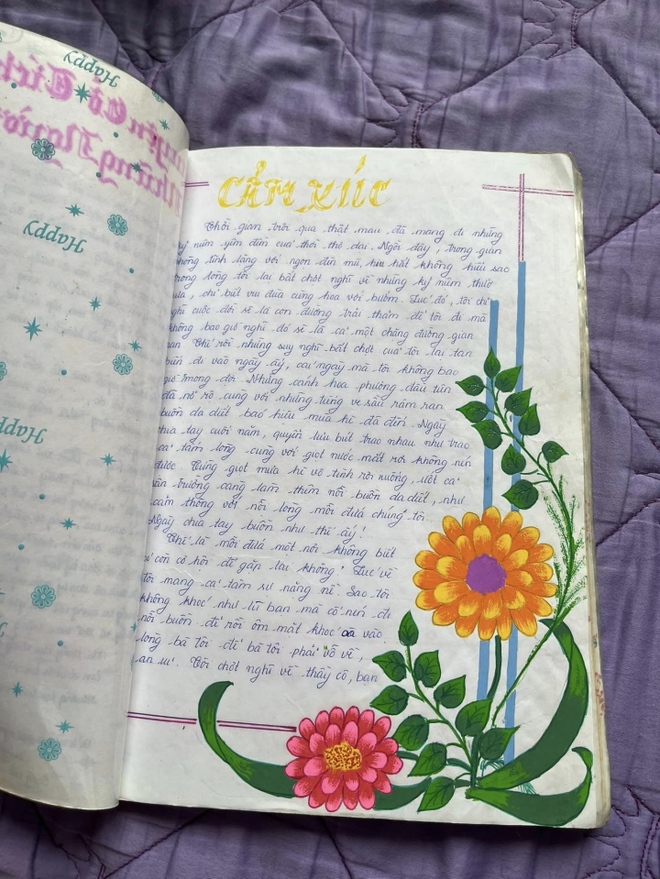 Happy
Cổ Tích
Những Người
Happy
Happy
CẢM XÚC
Thời gian trôi qua thật mau đã mang đi những
kỷ niệm yêu dấu của thời thơ dại. Ngồi đây, trong gian
không tĩnh lặng với ngọn đèn mờ, hiu hắt không hiểu sao
trong lòng tôi lại bất chợt nghĩ về những kỷ niệm thuở
xưa, chỉ biết vui đùa cùng hoa với bướm. Lúc đó, tôi chỉ
nghĩ cuộc đời sẽ là con đường trải thảm để tôi đi mà
không bao giờ nghĩ đó sẽ là cả một chặng đường gian
nan. Thế rồi những suy nghĩ bất chợt của tôi lại tan
biến đi vào ngày ấy, cái ngày mà tôi không bao
giờ mong đợi. Những cánh hoa phượng đầu tiên
đã nở rộ cùng với những tiếng ve sầu râm ran
buồn da diết báo hiệu mùa hè đã đến. Ngày
chia tay cuối năm, quyển lưu bút trao nhau như trao
cả tấm lòng cùng với giọt nước mắt rơi không nín
được. Từng giọt mưa hè vô tình rơi xuống, ướt cả
sân trường càng làm thêm nỗi buồn da diết, như
cảm thông với nỗi lòng mỗi đứa chúng tôi.
Ngày chia tay buồn như thế ấy!
Thế là mỗi đứa một nơi không biết
có còn cơ hội để gặp lại không? Lúc về
tôi mang cả tâm sự nặng nề. Sao tôi
không khóc như lũ bạn mà cố nén đi
nỗi buồn để rồi ôm mặt khóc oà vào
lòng bà tôi để bà tôi phải vỗ về,
an ủi. Tôi chợt nghĩ về thầy cô, bạn